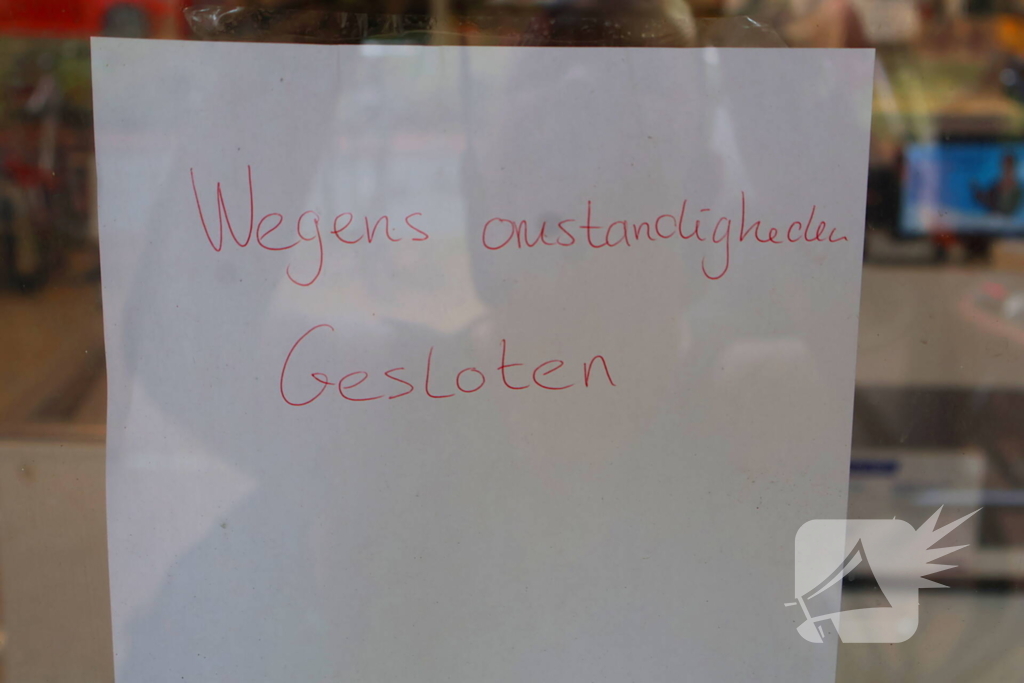 Wegens omstandigheden
Gesloten